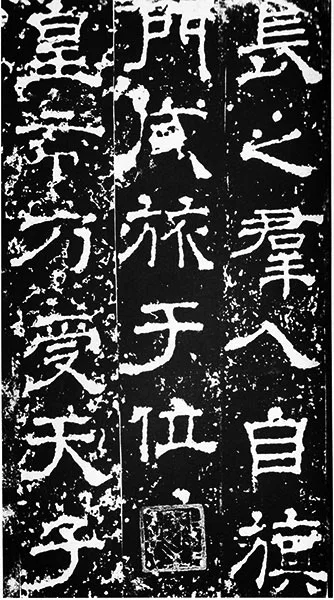 長之羣入自旗
門咸旅于位
皇帝乃受天子